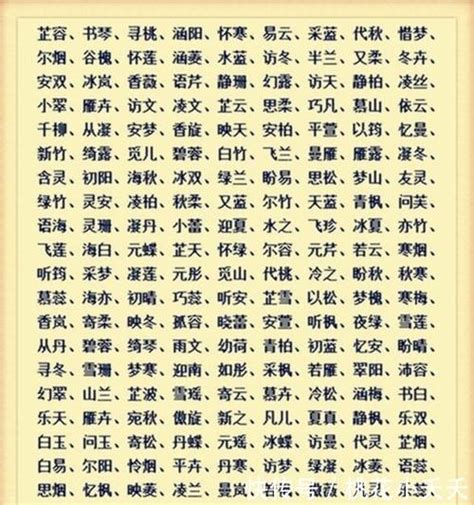 芷容、书琴、寻桃、涵阳、怀寒、易云、采蓝、代秋、惜梦、
尔烟、谷槐、怀莲、涵菱、水蓝、访冬、半兰、又柔、冬卉、
安双、冰岚、香薇、语芹、静珊、幻露、访天、静柏、凌丝、
小翠、雁卉、访文、凌文、芷云、思柔、巧凡、慕山、依云、
千柳、从凝、安梦、香旋、映天、安柏、平萱、以筠、忆曼、
新竹、绮露、觅儿、碧蓉、白竹、飞兰、曼雁、雁露、凝冬、
含灵、初阳、海秋、冰双、绿兰、盼易、思松、梦山、友灵、
绿竹、灵安、凌柏、秋柔、又蓝、尔竹、天蓝、青枫、问芙、
语海、灵珊、凝丹、小蕾、迎夏、水之、飞珍、冰夏、亦竹、
飞莲、海白、元蝶、芷天、怀绿、尔容、元芹、若云、寒烟、
听筠、采梦、凝莲、元彤、觅山、代桃、冷之、盼秋、秋寒、
慕蕊、海亦、初晴、巧蕊、听安、芷雪、以松、梦槐、寒梅、
香岚、寄柔、映冬、孤容、晓蕾、安萱、听枫、夜绿、雪莲、
从丹、碧蓉、绮琴、雨文、幼荷、青柏、初蓝、忆安、盼晴、
寻冬、雪珊、梦寒、迎南、如彤、采枫、若雁、翠阳、沛容、
幻翠、山兰、芷波、雪瑶、寄云、慕卉、冷松、涵梅、书白、
乐天、雁卉、宛秋、傲旋、新之、凡儿、夏真、静枫、乐双、
白玉、问玉、寄松、丹蝶、元瑶、冰蝶、访曼、代灵、芷烟、
白易、尔阳、怜烟、平卉、丹寒、访梦、绿凝、冰菱、语蕊、
思烟、忆枫、映菱、凌兰、曼岚、若枫、傲薇、凡灵、乐蕊、
快传号 / 桃花小夭夭